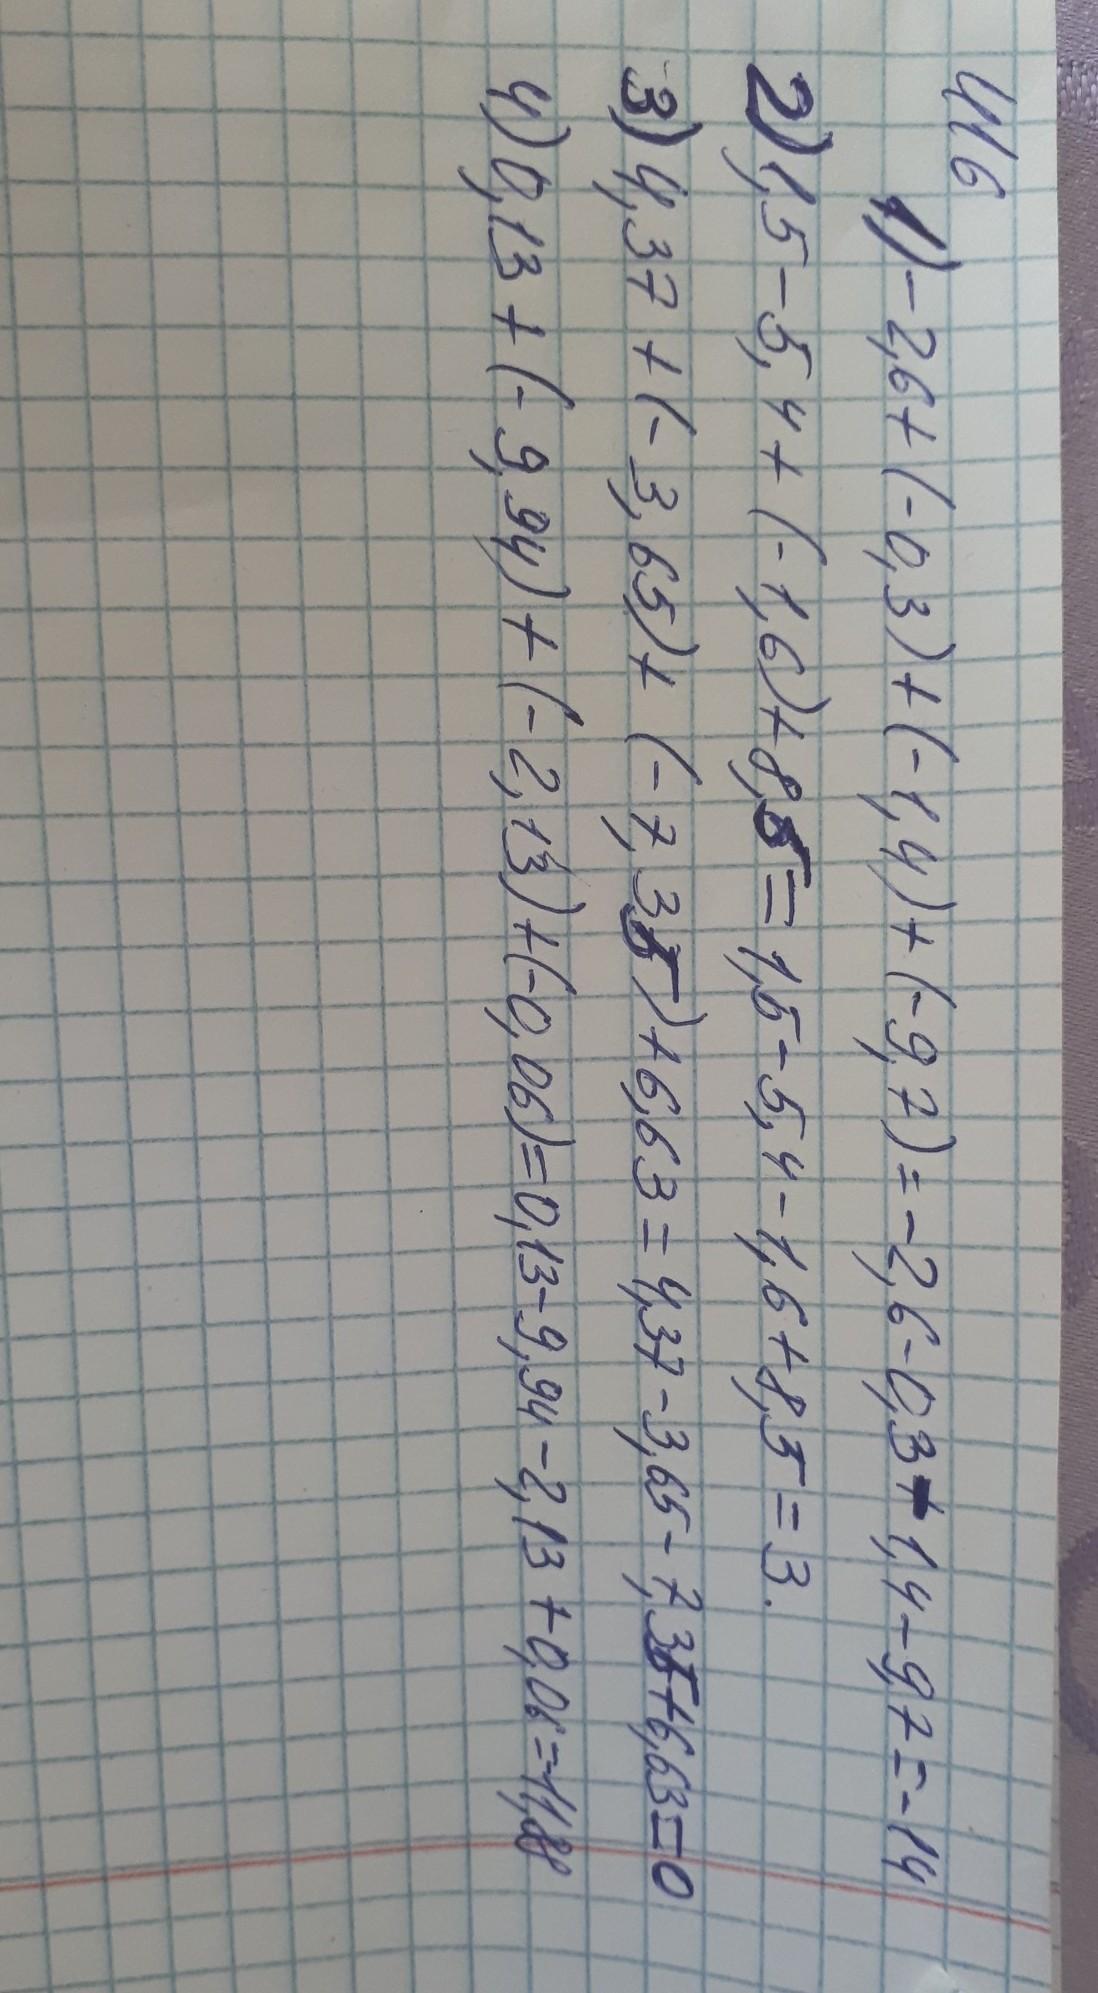 1116
1) -2,6+(-0,3)+(-1,4)+(-9,7)=-2,6-0,3-1,4-9,7=-14
2) 1,5-5,4+(-1,6)+8,5=1,5-5,4-1,6+8,5=3.
3) 4,37+(-3,65)+(-7,35)+6,63=4,37-3,65-7,35+6,63=0
4) 0,13+(-9,94)+(-2,13)+(-0,06)=0,13-9,94-2,13+0,06=-11,88